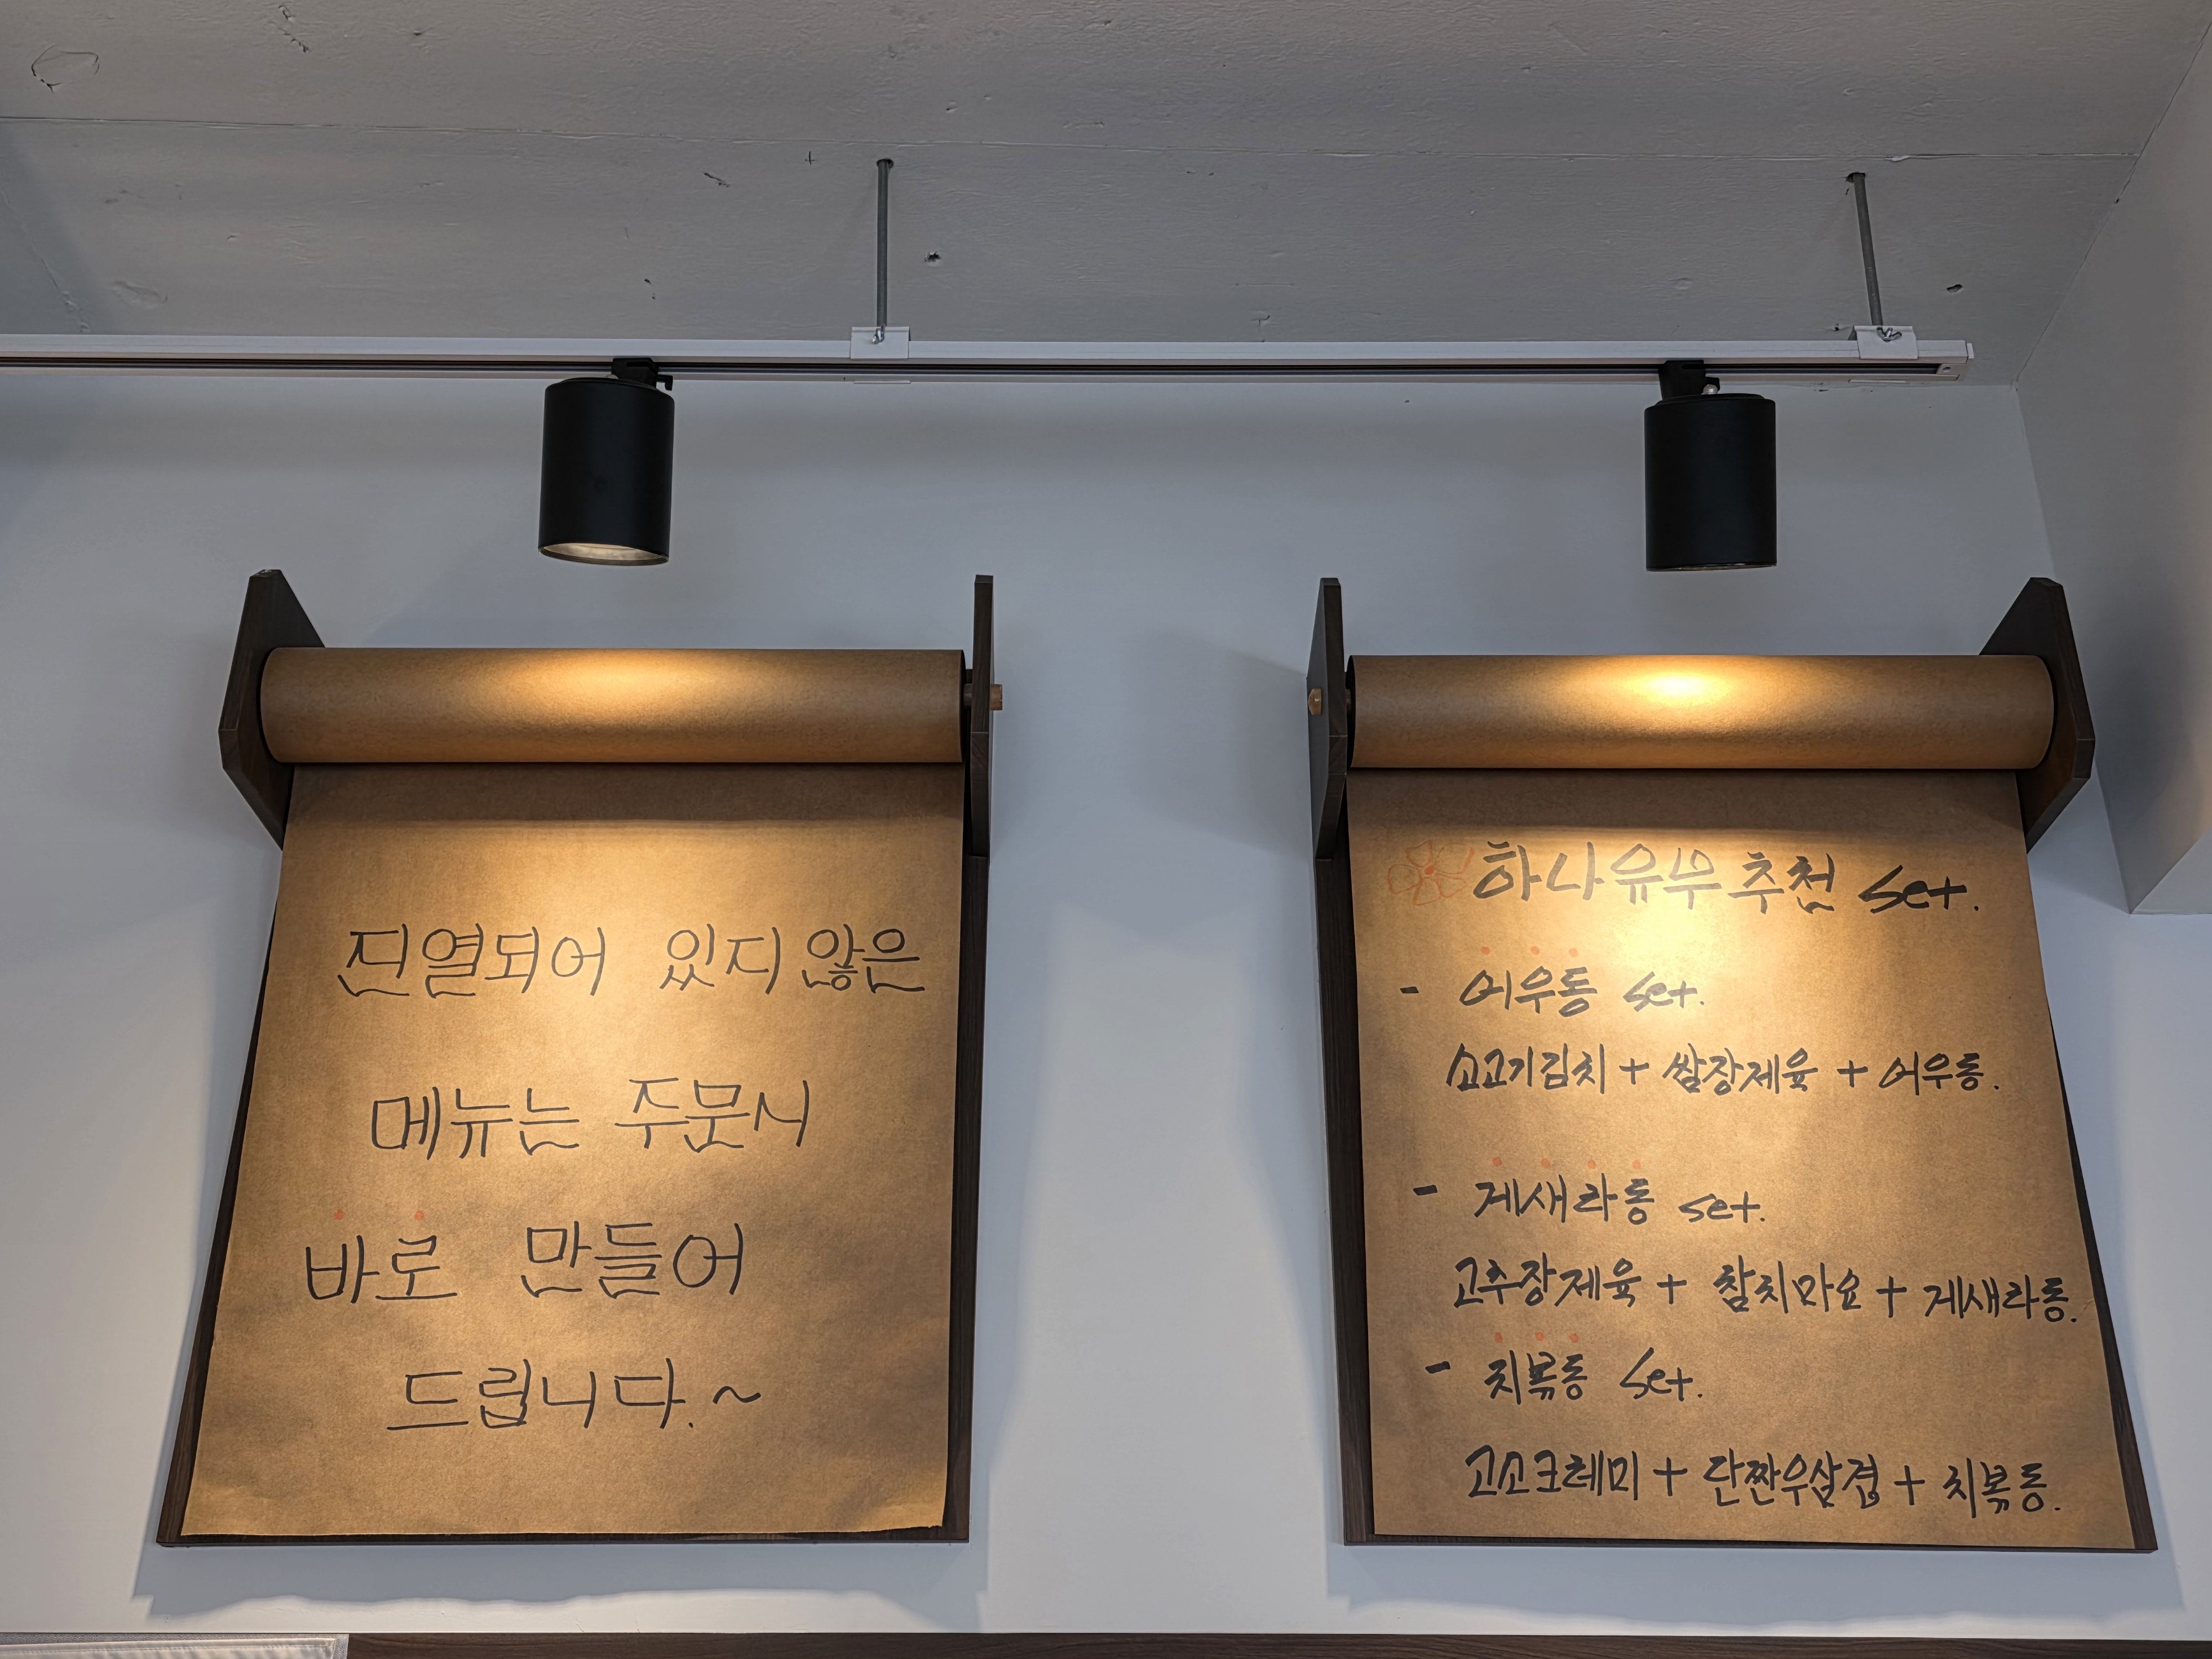 진열되어 있지 않은
메뉴는 주문시
바로 만들어
드립니다.~
하나유부 추천 Set.
- 어우동 Set.
소고기김치 + 쌈장제육 + 어우동.
- 게새라동 set.
고추장제육 + 참치마요 + 게새라동.
- 치볶동 Set.
고소크래미 + 단짠우삼겹 + 치볶동.